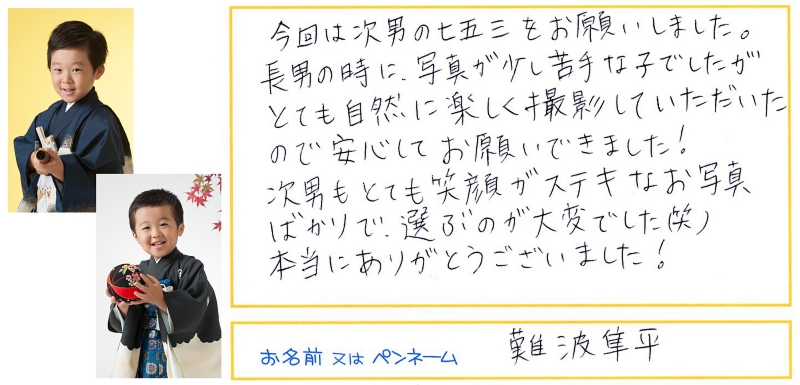 今回は次男の七五三をお願いしました。
長男の時に、写真が少し苦手な子でしたが
とても自然に楽しく撮影していただいた
ので安心してお願いできました！
次男もとても笑顔がステキなお写真
ばかりで、選ぶのが大変でした(笑)
本当にありがとうございました！
お名前 又は ペンネーム 難波隼平